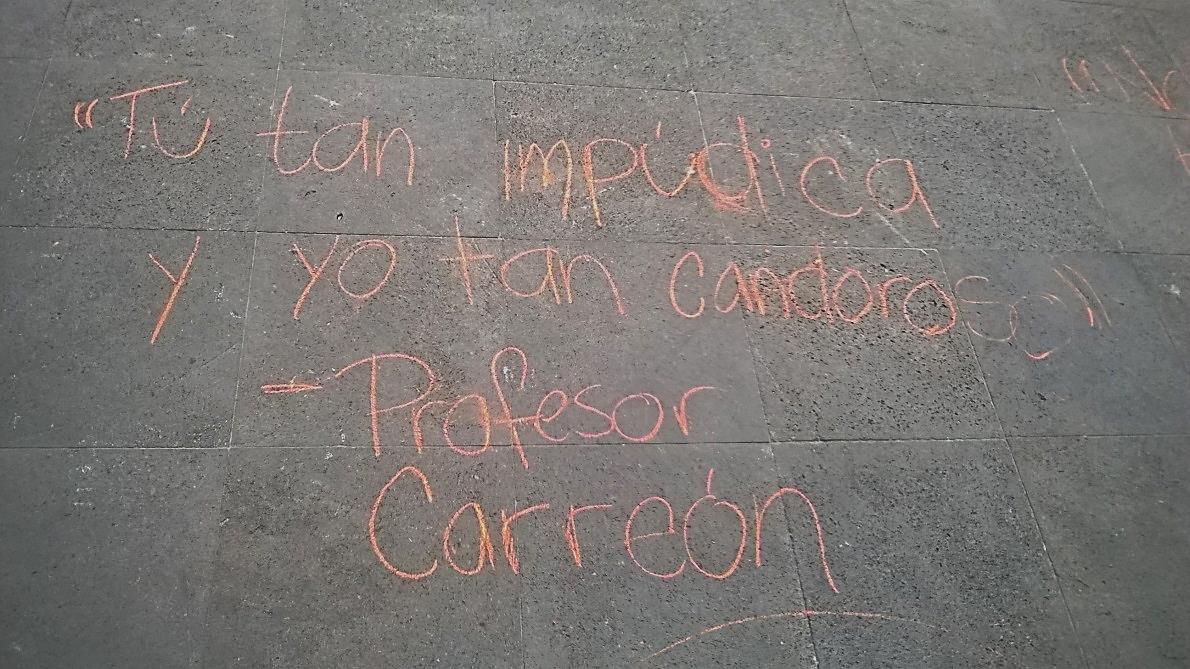 "Tú tan impúdica
y yo tan candoroso"
- Profesor
Carreón